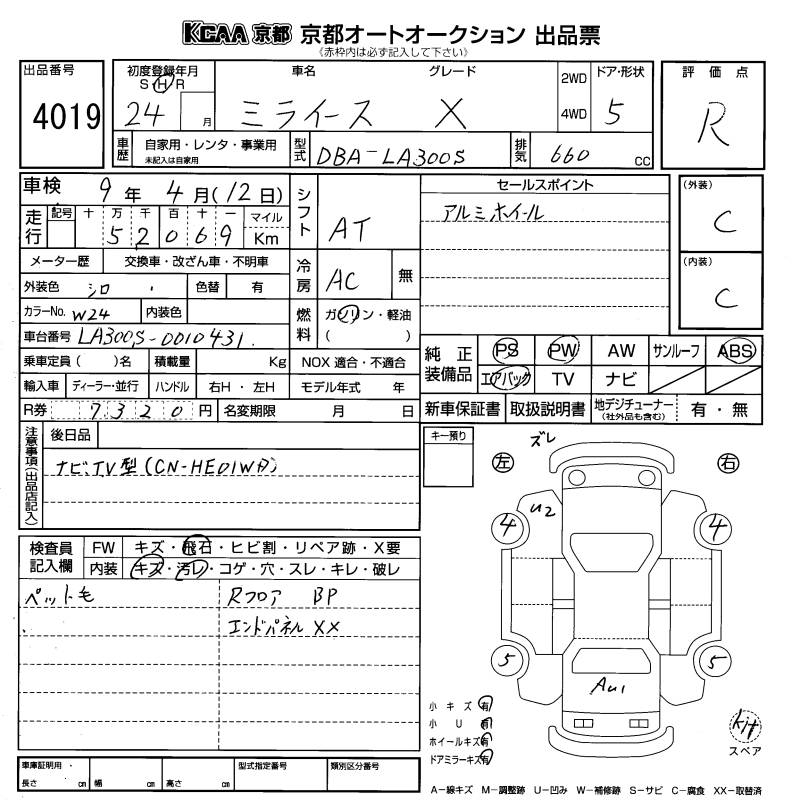 KCAA 京都 京都オートオークション 出品票
《赤枠内は必ず記入して下さい》
出品番号
4019
初度登録年月
S H R
24 月
車名 グレード
ミライース X
2WD
4WD
ドア・形状
5
評価点
R
車歴
自家用・レンタ・事業用
未記入は自家用
型式
DBA-LA300S
排気
660 cc
車検 9年 4月(12日)
走行
記号 十 万 千 百 十 一 マイル
5 2 0 6 9 Km
シフト
AT
セールスポイント
アルミホイール
(外装)
C
(内装)
C
メーター歴 交換車・改ざん車・不明車
外装色 シロ 色替 有
冷房
AC 無
カラーNo. W24 内装色
燃料
ガソリン・軽油
( )
車台番号 LA300S-0010431
乗車定員( )名 積載量 Kg NOX 適合・不適合
輸入車 ディーラー・並行 ハンドル 右H・左H モデル年式 年
R券 7320円 名変期限 月 日
純正装備品
PS PW AW サンルーフ ABS
エアバック TV ナビ
新車保証書 取扱説明書 地デジチューナー
(社外品も含む)
有・無
注意事項(出品店記入)
後日品
ナビ、TV型(CN-HE01WD)
キー預り
ズレ
左 右
U2
4 4
5 5
AU1
検査員記入欄
FW キズ・飛石・ヒビ割・リペア跡・X要
内装 キズ・汚レ・コゲ・穴・スレ・キレ・破レ
ペット毛 Rフロア BP
エンドパネル XX
小キズ 有
小 U 有
ホイールキズ 有
ドアミラーキズ 有
kit
スペア
車庫証明用
長さ cm 幅 cm 高さ cm
型式指定番号 類別区分番号
A-線キズ M-調整跡 U-凹み W-補修跡 S-サビ C-腐食 XX-取替済